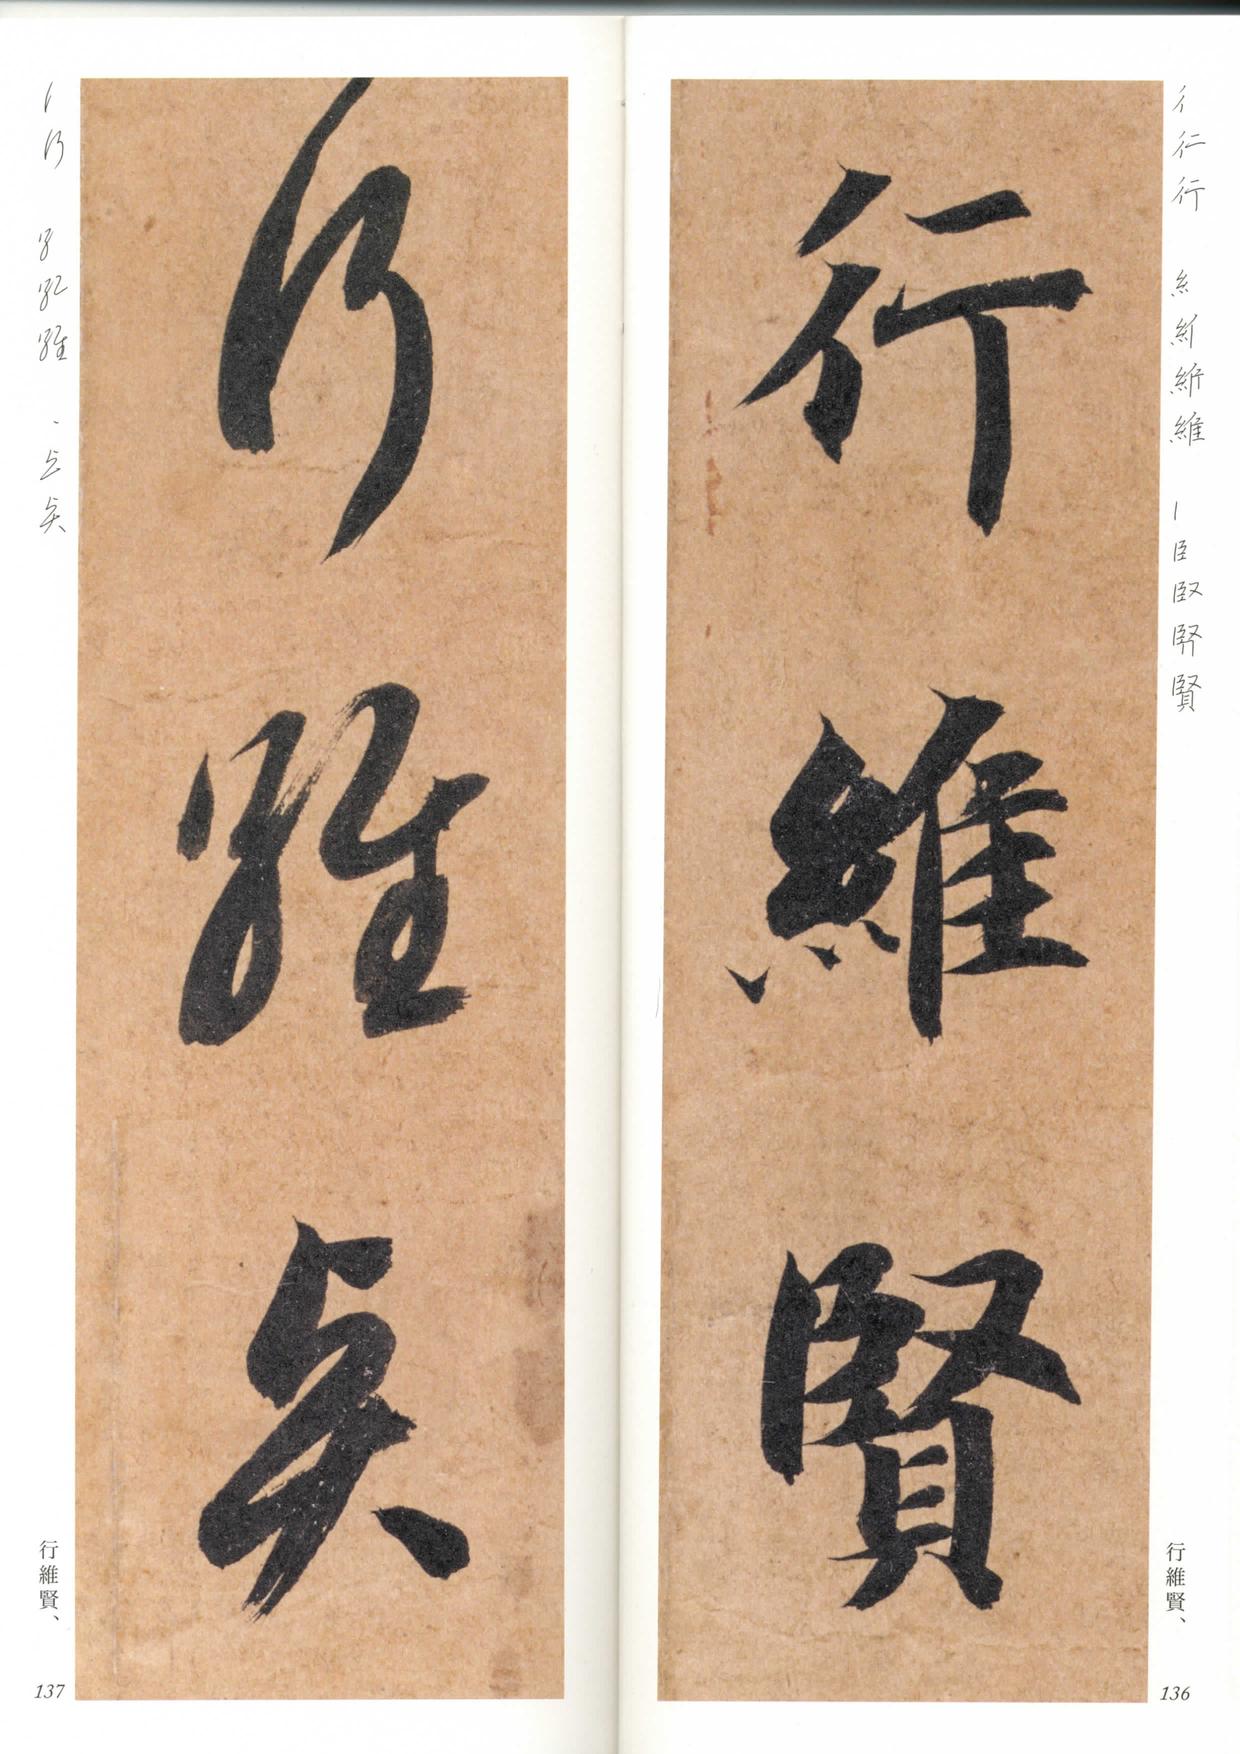 行維賢
行維賢、
136
行維賢
行維賢、
137